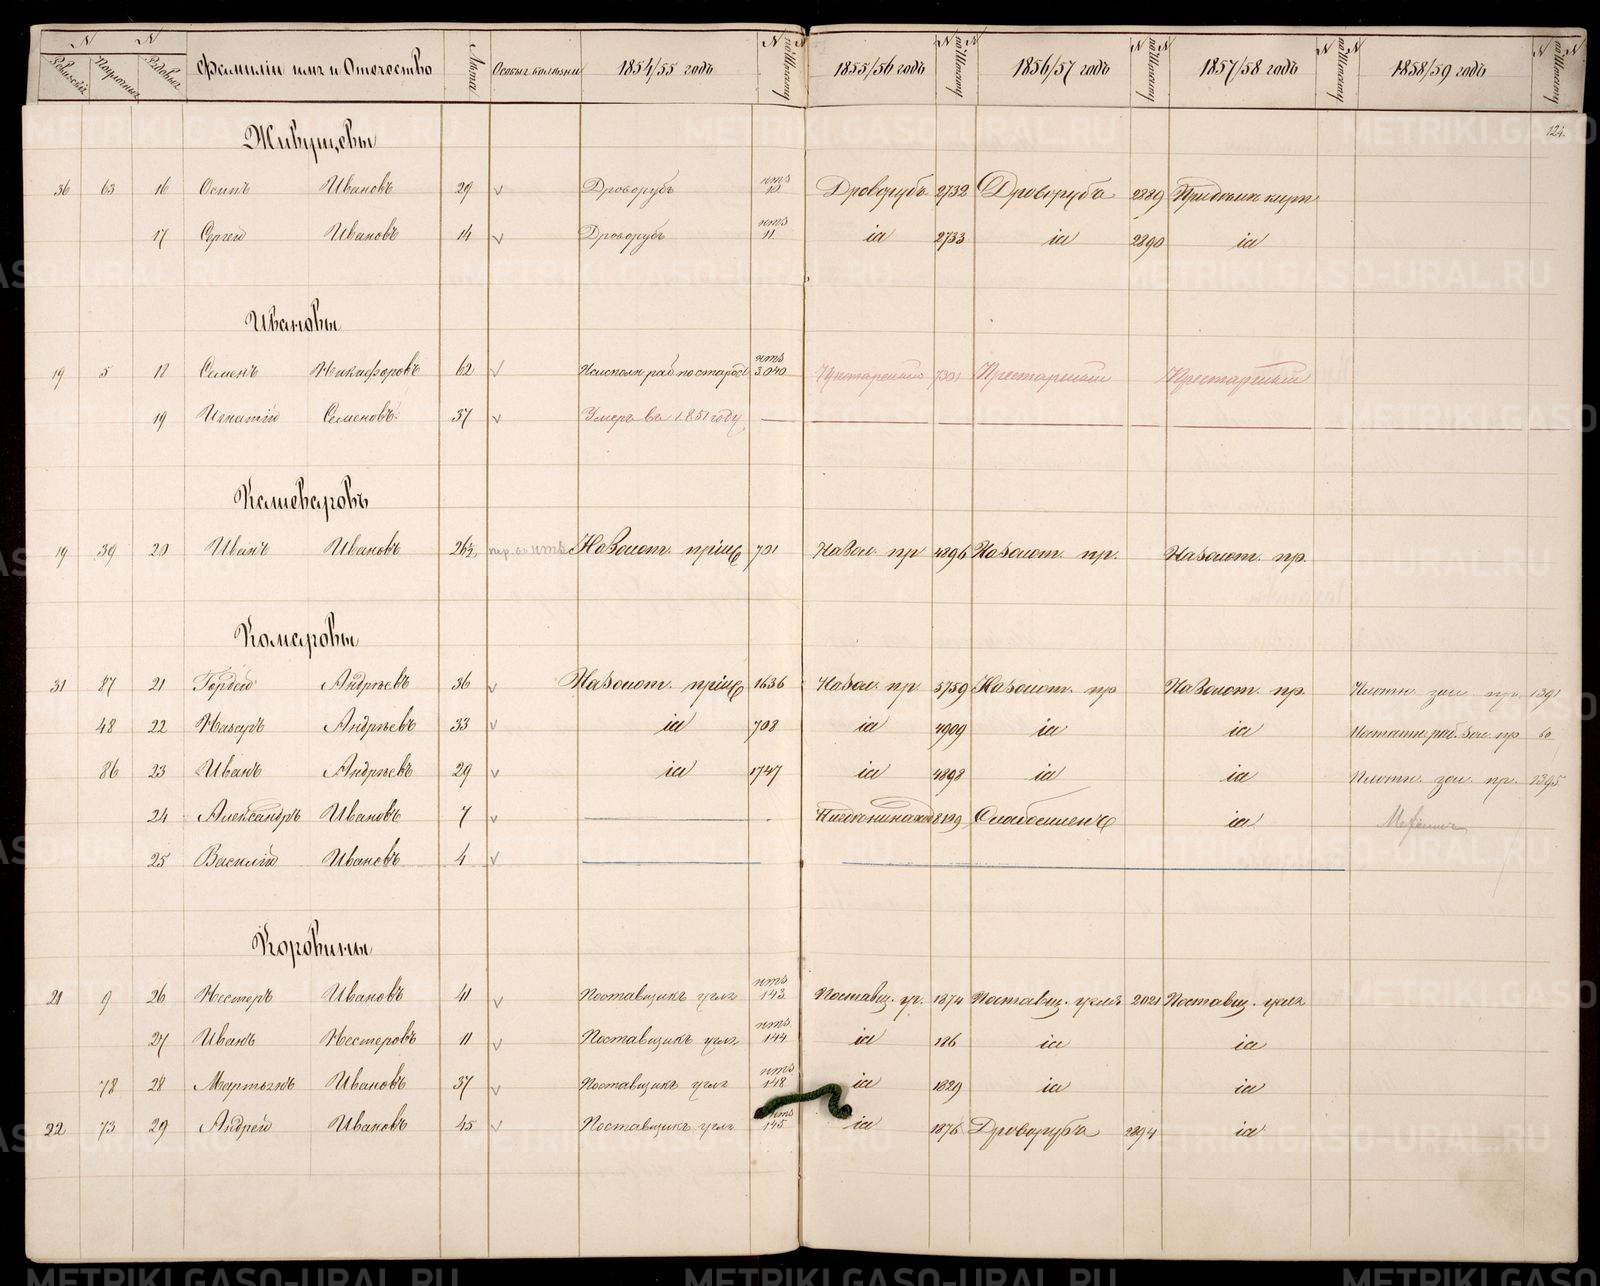 N N
Ревизскiй Посемейн. Рядовый Фамилiи имя и Отечество Лѣта Особыя болѣзни 1854/55 годъ N по Штату 1855/56 годъ N по Штату 1856/57 годъ N по Штату 1857/58 годъ N по Штату 1858/59 годъ N по Штату
124.
Живущевы
36 63 16 Осипъ Ивановъ 29 Дроворубъ 10 Дроворубъ 2732 Дроворубъ 2889
17 Сергей Ивановъ 14 Дроворубъ 11 ia 2733 ia 2890 ia
Ивановы
19 5 18 Семенъ Никифоровъ 62 3.040 Престарелый 7301 Престарелый Престарелый
19 Игнатiй Семеновъ 37 Умеръ въ 1851 году
Кашеваровъ
19 39 20 Иванъ Ивановъ 26½ На Золот. прiис 701 На Зол. пр 4896 На Золот. пр. На Золот. пр.
Комаровы
31 87 21 Гордей Андреевъ 36 На Золот. прiис 1636 На Зол. пр 5759 На Золот. пр На Золот. пр. Плотн. зол. пр. 1391
48 22 Назаръ Андреевъ 33 ia 708 ia 4909 ia ia раб. зол. пр 60
86 23 Иванъ Андреевъ 29 ia 1747 ia 4898 ia ia Плотн. зол. пр. 1395
24 Александръ Ивановъ 7 8199 Слабосиленъ ia
25 Василiй Ивановъ 4
Коровины
21 9 26 Нестеръ Ивановъ 41 Поставщикъ угля 143 Поставщ. уг. 1874 Поставщ. угля 2021 Поставщ. угля
27 Иванъ Нестеровъ 11 Поставщикъ угля 144 ia 186 ia ia
78 28 Мартынъ Ивановъ 37 Поставщикъ угля 148 ia 1829 ia ia
22 73 29 Андрей Ивановъ 45 Поставщикъ угля 145 ia 1876 Дроворубъ 2894 ia
METRIKI.GASO-URAL.RU